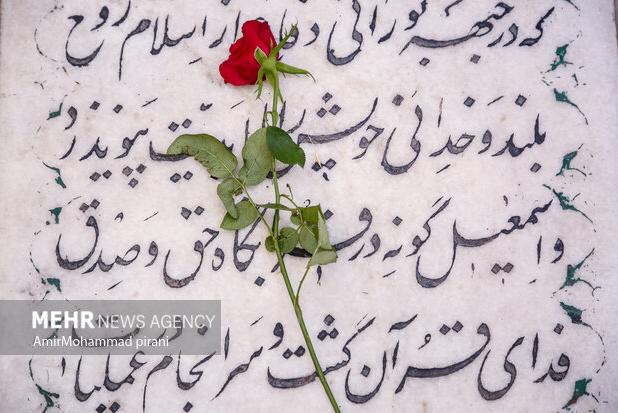 که در جبهه نورانی دفاع از اسلام روح
بلند و خدائی خویش بپیوندد
و اسمعیل گونه در قربانگاه حق و صدق
فدای قرآن گشت و سرانجام عملیات
MEHR NEWS AGENCY
AmirMohammad pirani